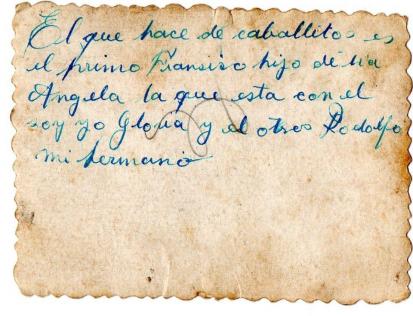 El que hace de caballitos es
el primo Fransisco hijo de tia
Angela la que esta con el
soy yo Gloria y el otro Rodolfo
mi hermano